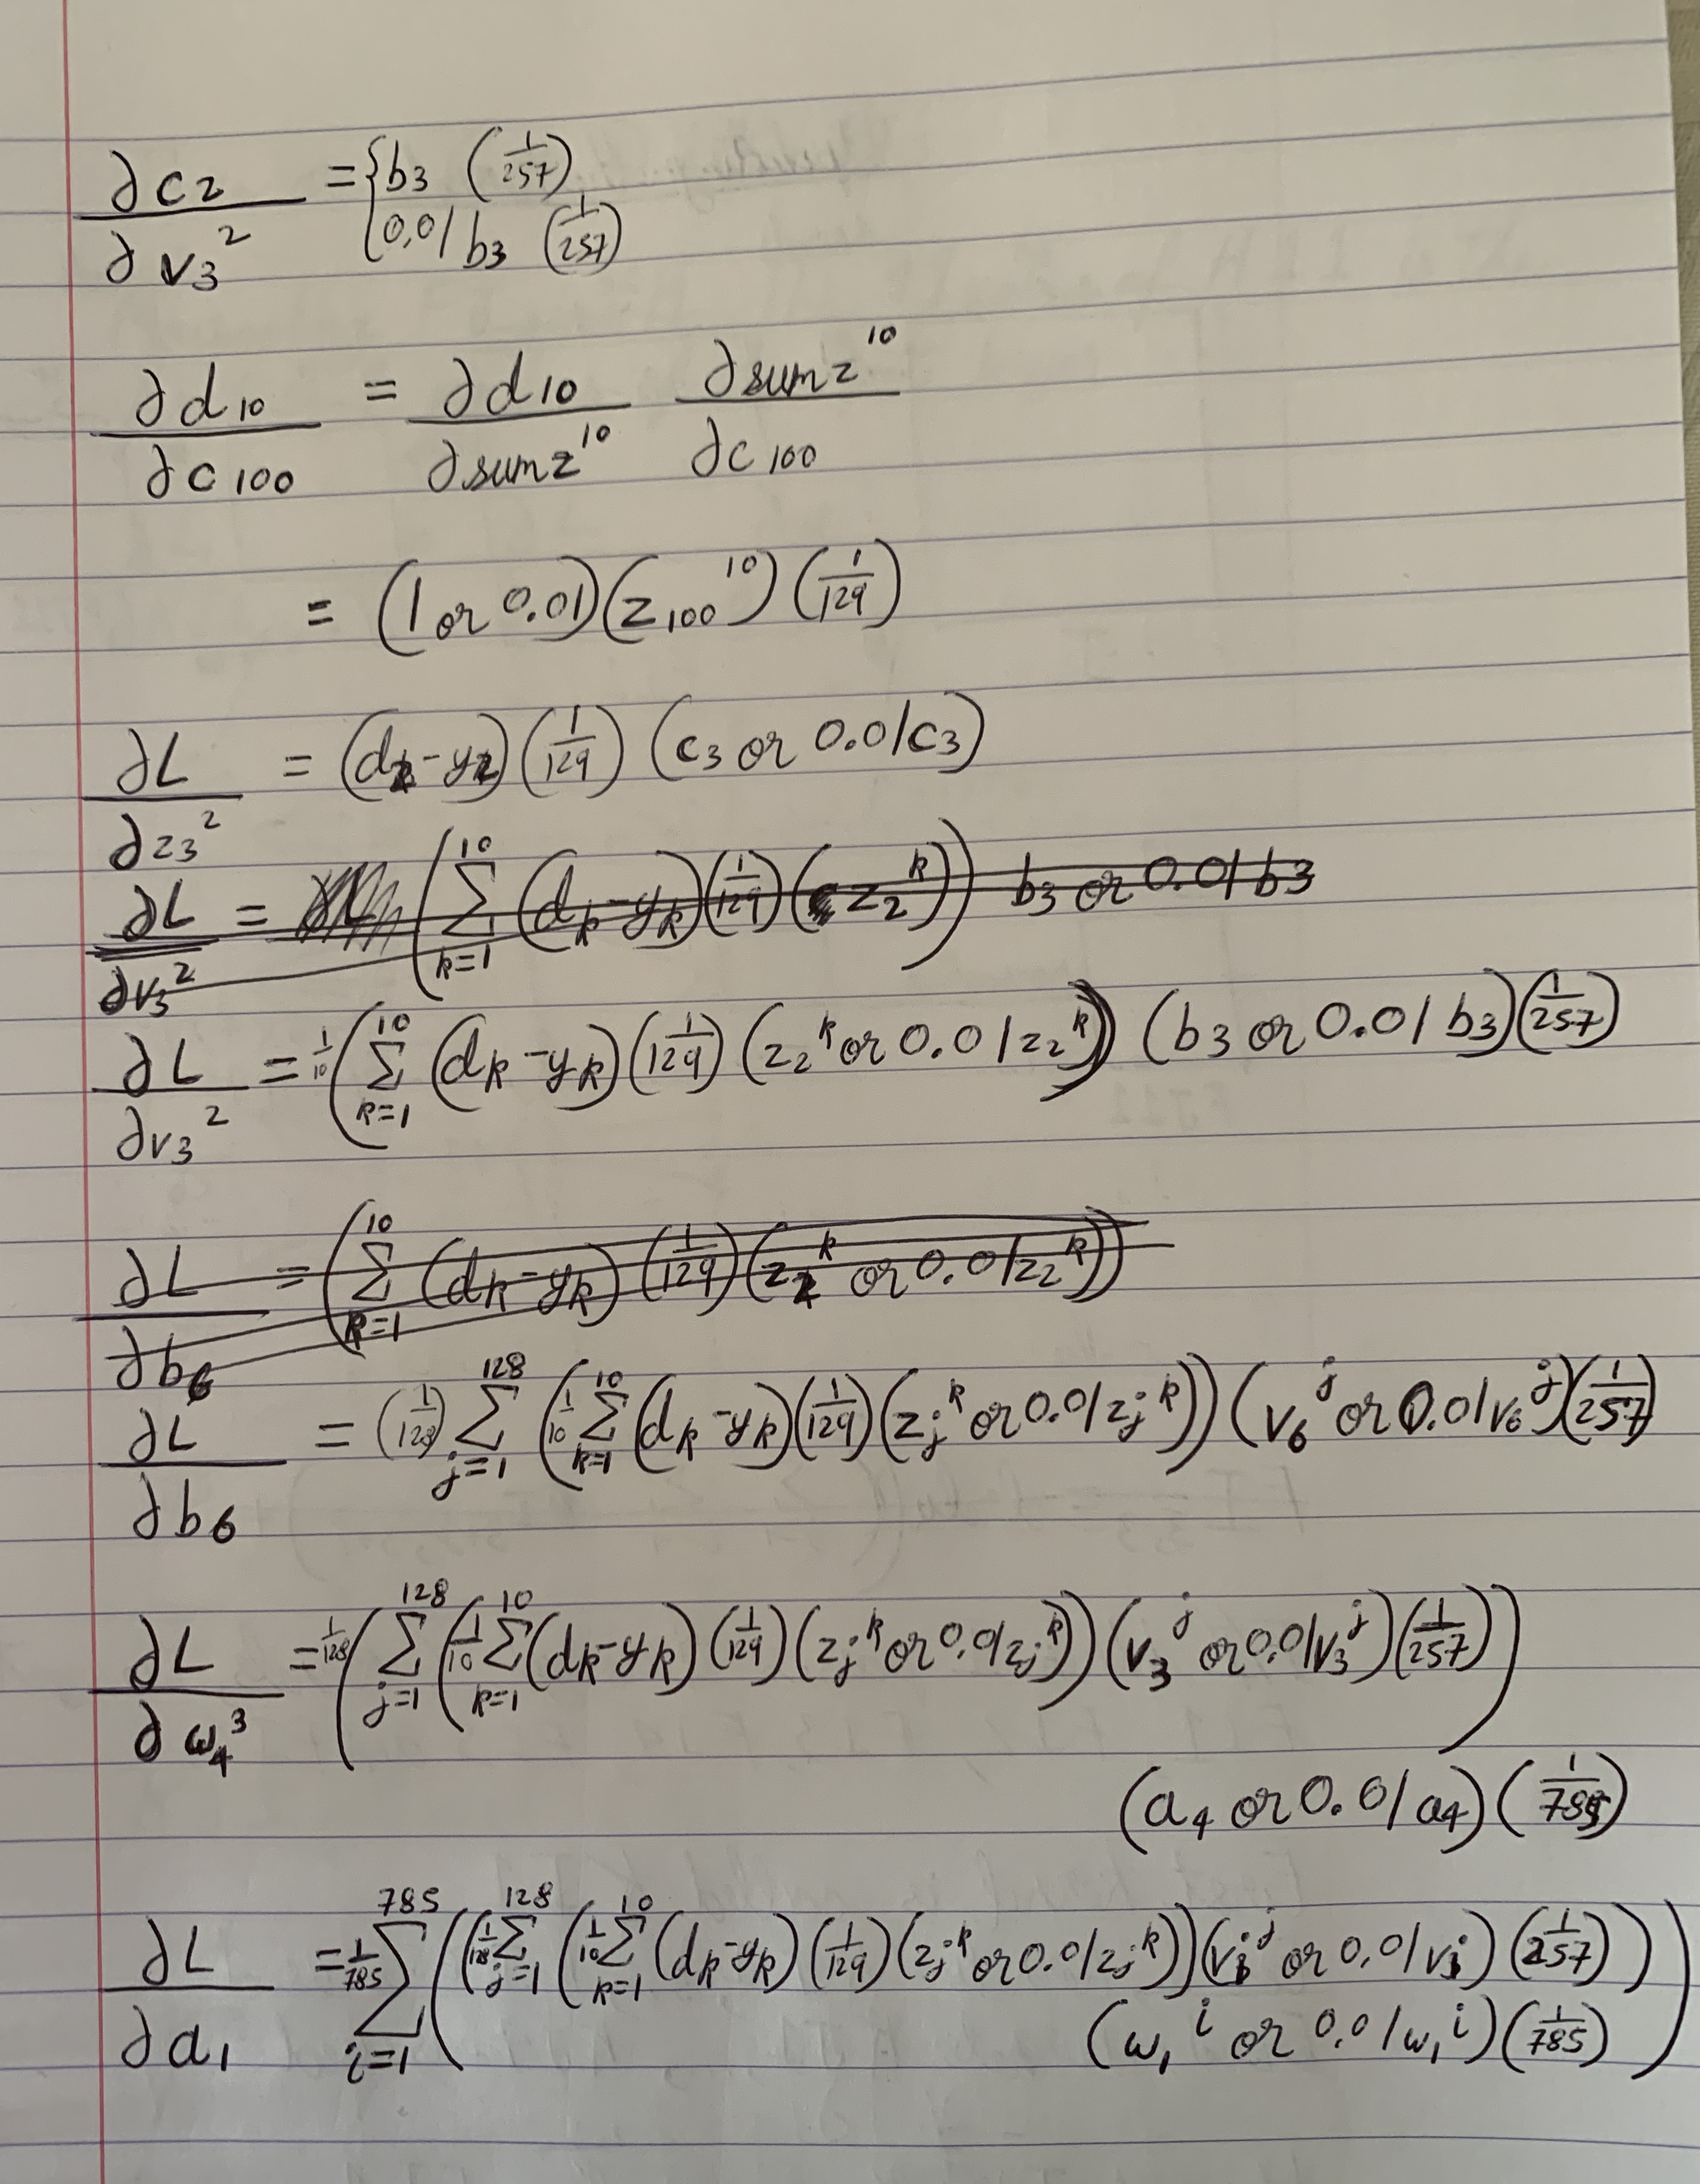 ∂c₂/∂v₃² = { b₃ (1/257), 0.01 b₃ (1/257)
∂d₁₀/∂c₁₀₀ = ∂d₁₀/∂sumz¹⁰ ∂sumz¹⁰/∂c₁₀₀
= (1 or 0.01)(z₁₀₀¹⁰)(1/129)
∂L/∂z₃² = (d₂-y₂)(1/129)(c₃ or 0.01c₃)
∂L/∂v₃² = (∑ₖ₌₁¹⁰ (dₖ-yₖ)(1/129)(z₂ᵏ)) b₃ or 0.01 b₃
∂L/∂v₃² = 1/10 (∑ₖ₌₁¹⁰ (dₖ-yₖ)(1/129)(z₂ᵏ or 0.01z₂ᵏ)) (b₃ or 0.01 b₃)(1/257)
∂L/∂b₆ = (∑ₖ₌₁¹⁰ (dₖ-yₖ)(1/129)(z₂ᵏ or 0.01z₂ᵏ))
∂L/∂b₆ = (1/128) ∑ⱼ₌₁¹²⁸ (1/10 ∑ₖ₌₁¹⁰ (dₖ-yₖ)(1/129)(zⱼᵏ or 0.01zⱼᵏ)) (v₆ʲ or 0.01v₆ʲ)(1/257)
∂L/∂ω₄³ = 1/128 (∑ⱼ₌₁¹²⁸ (1/10 ∑ₖ₌₁¹⁰ (dₖ-yₖ)(1/129)(zⱼᵏ or 0.01zⱼᵏ)) (v₃ʲ or 0.01v₃ʲ)(1/257))
(a₄ or 0.01 a₄)(1/785)
∂L/∂a₁ = 1/785 ∑ᵢ₌₁⁷⁸⁵ ((1/128 ∑ⱼ₌₁¹²⁸ (1/10 ∑ₖ₌₁¹⁰ (dₖ-yₖ)(1/129)(zⱼᵏ or 0.01zⱼᵏ)) (vᵢʲ or 0.01vᵢ)(1/257))
(ω₁ⁱ or 0.01ω₁ⁱ)(1/785))